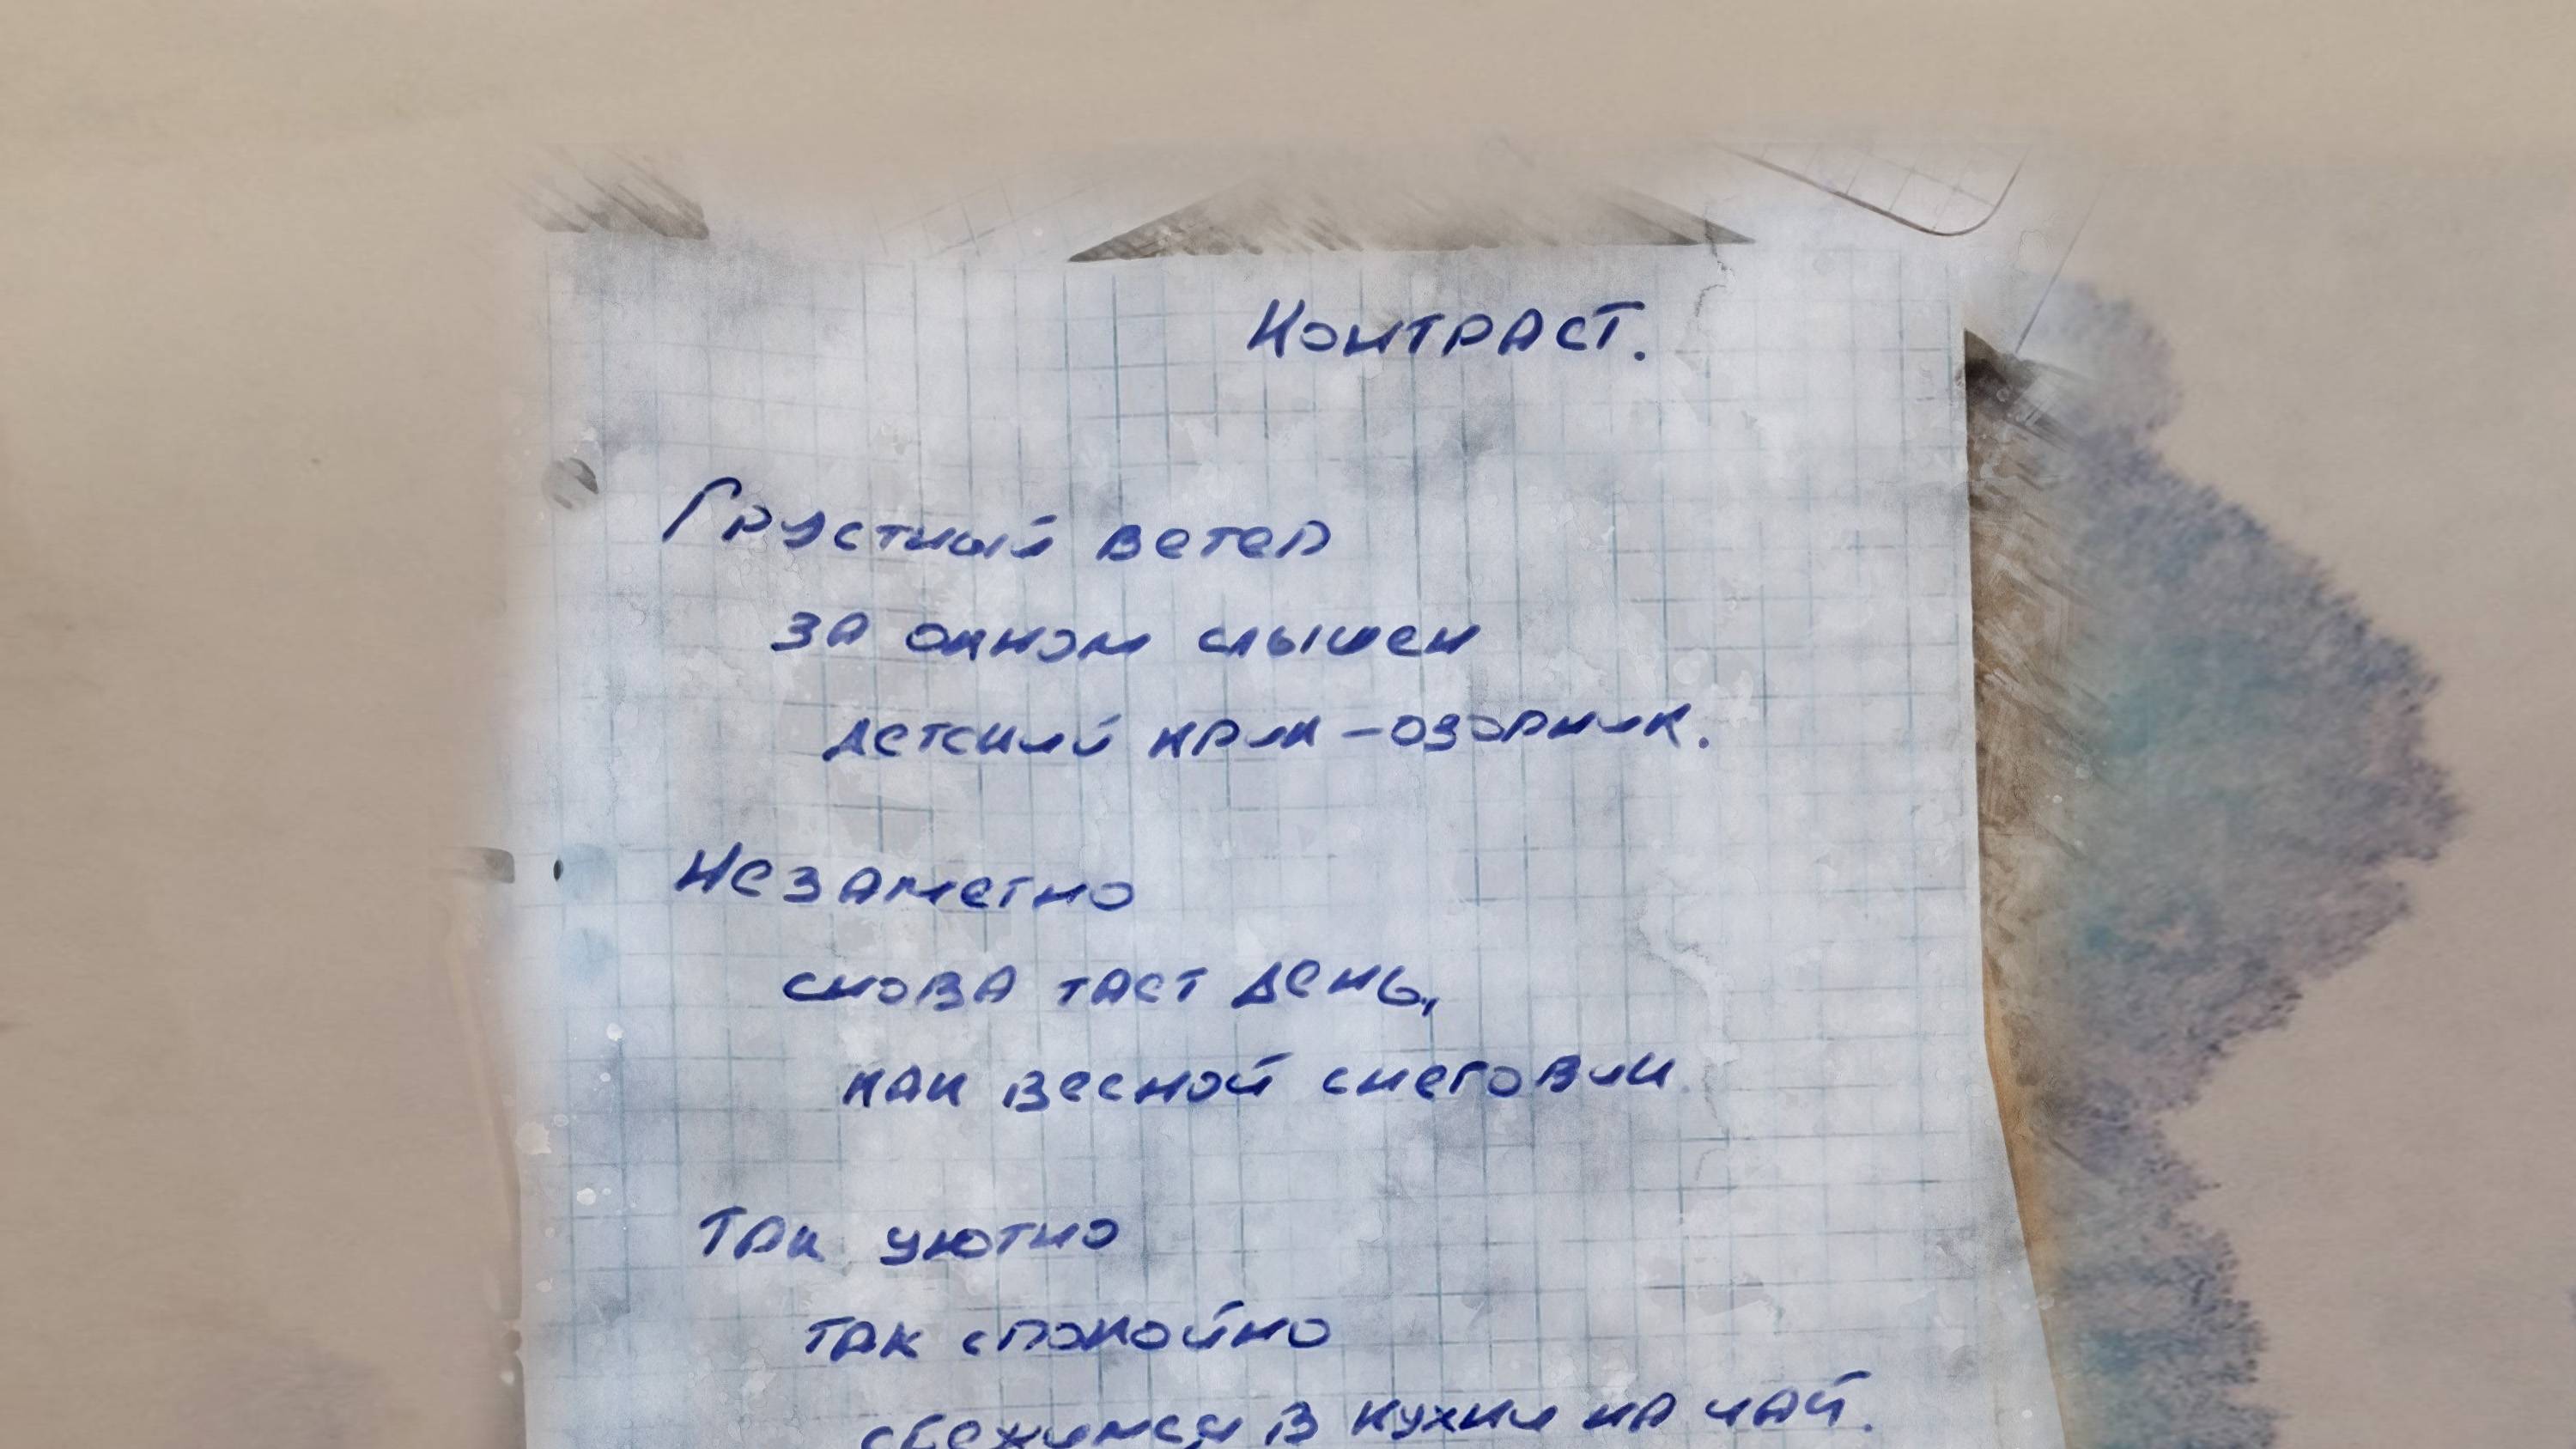 Контраст.
Грустный ветер
за окном слышен
детский крик - озорник.
Незаметно
снова тает день,
как весной снеговик
Так уютно
так спокойно
сбежимся в кухни на чай.